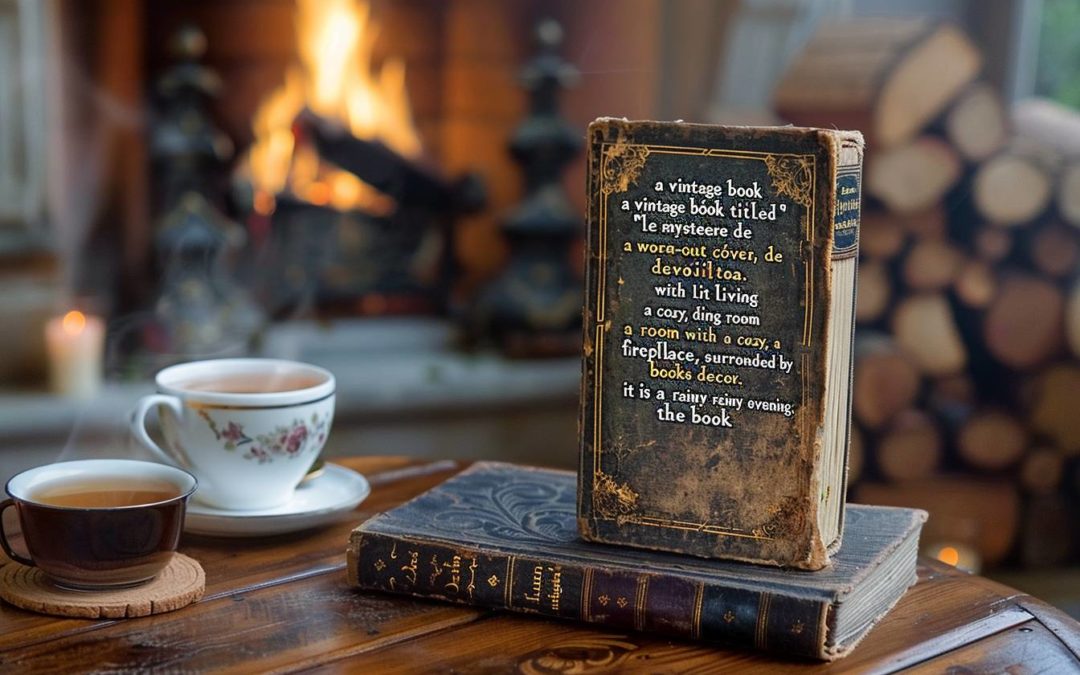 a vintage book
a vintage bo̕ok titled°
"le mysteere de
a wora-out co̕ver, de
devoiltoa.
with lit living
a cozy, ding room
a room with a cozy, a
fireplace, surrounded by
books decor.
it is a rainy rainy evening,
the book